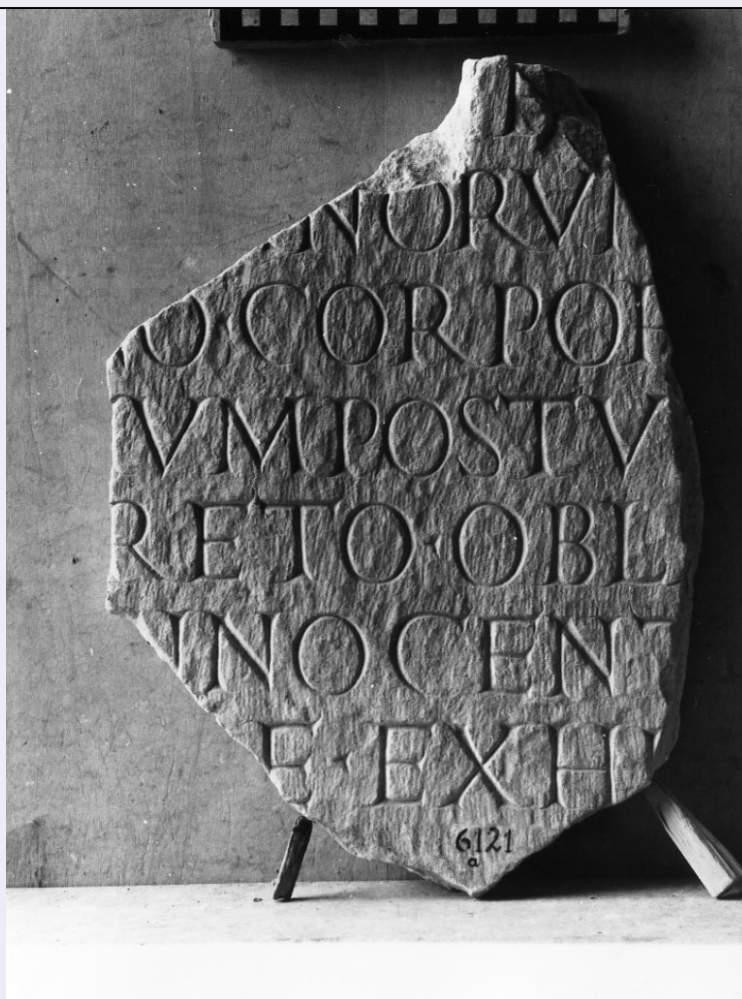 NORVM
O·CORPOR
VM POSTV
RETO·OBL
INNOCENT
E·EXHI
6121
a